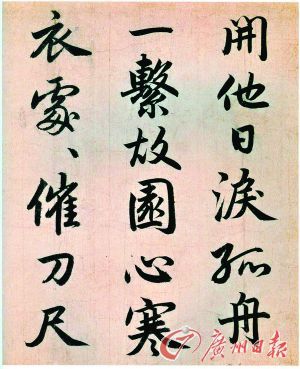 開他日淚孤舟
一繫故園心寒
衣處〻催刀尺
廣州日報